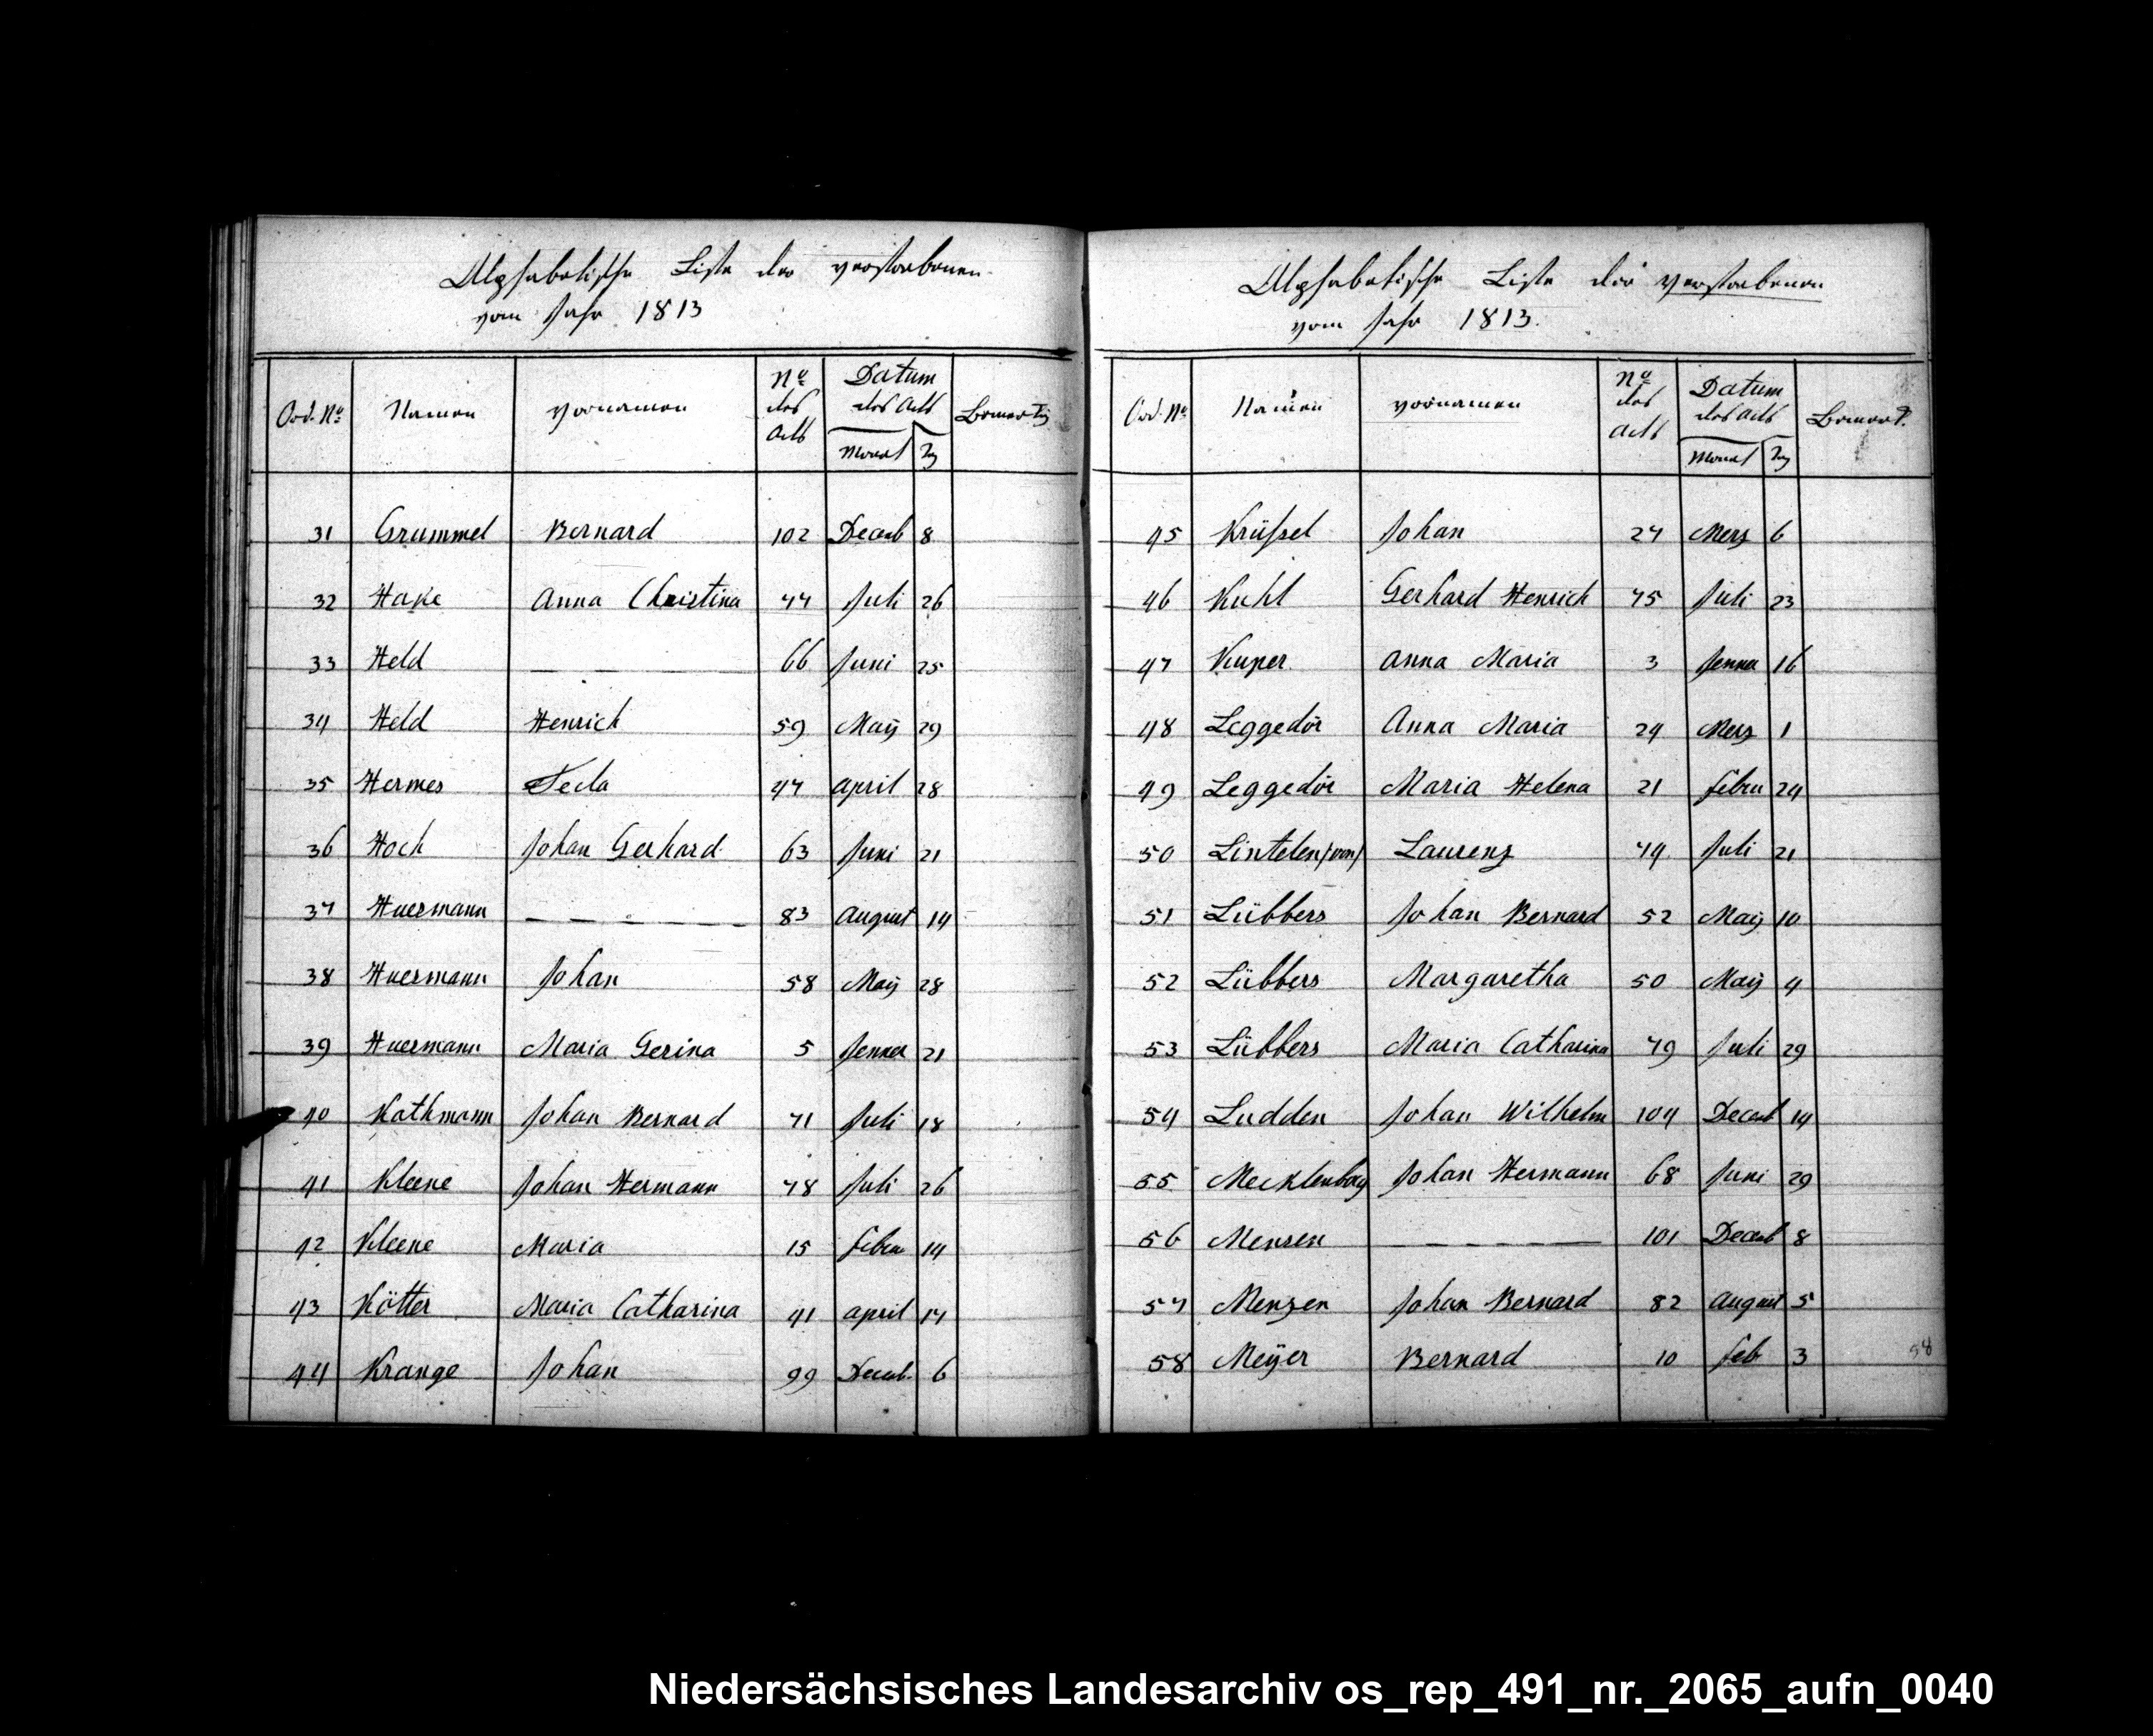 Alphabetische Liste der verstorbenen
vom Jahr 1813
Ord. No. Namen Vornamen No. des Acts Datum des Acts Monat Tag Bemerkg
31 Grummel Bernard 102 Decemb 8
32 Hake Anna Christina 77 Juli 26
33 Held — — — 66 Juni 25
34 Held Henrich 59 Maÿ 29
35 Hermes Tecla 47 April 28
36 Hoch Johan Gerhard 63 Juni 21
37 Huermann — — — — 83 August 14
38 Huermann Johan 58 Maÿ 28
39 Huermann Maria Gerina 5 Jenner 21
40 Kathmann Johan Bernard 71 Juli 18
41 Kleene Johan Hermann 78 Juli 26
42 Kleene Maria 15 Febru 14
43 Kötter Maria Catharina 41 April 14
44 Krange Johan 99 Decemb. 6
Alphabetische Liste der verstorbenen
vom Jahr 1813.
Ord. No. Namen Vornamen No. des Acts Datum des Acts Monat Tag Bemerk.
45 Krüssel Johan 27 Merz 6
46 Kuhl Gerhard Henrich 75 Juli 23
47 Kuper Anna Maria 3 Jenner 16
48 Leggedör Anna Maria 24 Merz 1
49 Leggedör Maria Helena 21 Febru 24
50 Lintelen /von/ Laurenz 74 Juli 21
51 Lübbers Johan Bernard 52 Maÿ 10
52 Lübbers Margaretha 50 Maÿ 4
53 Lübbers Maria Catharina 79 Juli 29
54 Ludden Johan Wilhelm 104 Decemb 14
55 Mecklenborg Johan Hermann 68 Juni 29
56 Menzen — — — — — 101 Decemb 8
57 Menzen Johan Bernard 82 August 5
58 Meÿer Bernard 10 Feb 3
58
Niedersächsisches Landesarchiv os_rep_491_nr._2065_aufn_0040